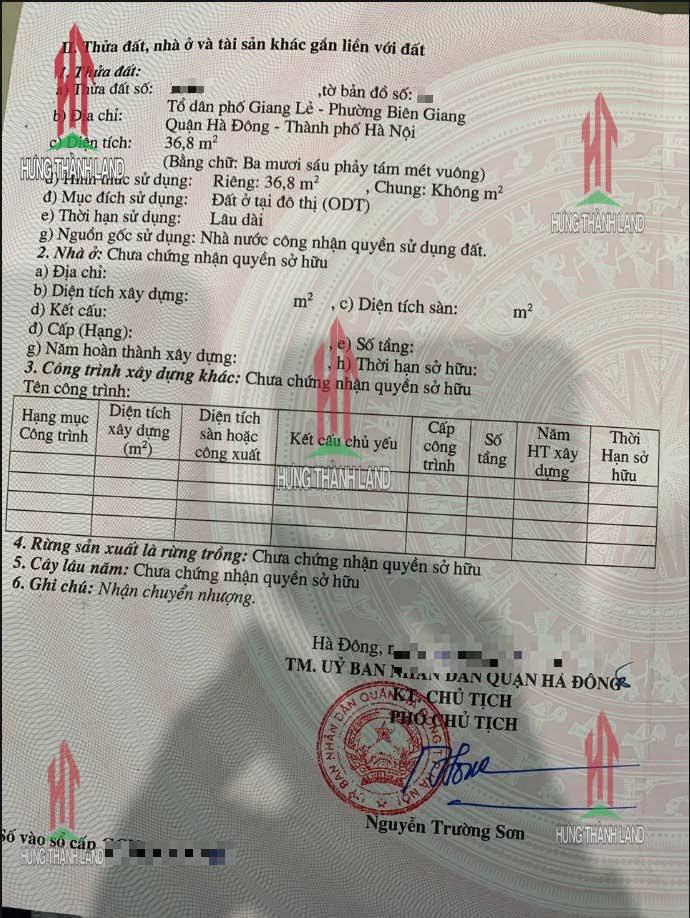 II. Thửa đất, nhà ở và tài sản khác gắn liền với đất
1. Thửa đất:
a) Thửa đất số: ,tờ bản đồ số:
b) Địa chỉ: Tổ dân phố Giang Lẻ - Phường Biên Giang
Quận Hà Đông - Thành phố Hà Nội
c) Diện tích: 36,8 m²
(Bằng chữ: Ba mươi sáu phảy tám mét vuông)
d) Hình thức sử dụng: Riêng: 36,8 m² , Chung: Không m²
đ) Mục đích sử dụng: Đất ở tại đô thị (ODT)
e) Thời hạn sử dụng: Lâu dài
g) Nguồn gốc sử dụng: Nhà nước công nhận quyền sử dụng đất.
2. Nhà ở: Chưa chứng nhận quyền sở hữu
a) Địa chỉ:
b) Diện tích xây dựng: m² , c) Diện tích sàn: m²
d) Kết cấu:
đ) Cấp (Hạng): , e) Số tầng:
g) Năm hoàn thành xây dựng: , h) Thời hạn sở hữu:
3. Công trình xây dựng khác: Chưa chứng nhận quyền sở hữu
Tên công trình:
Hạng mục Công trình | Diện tích xây dựng (m²) | Diện tích sàn hoặc công xuất | Kết cấu chủ yếu | Cấp công trình | Số tầng | Năm HT xây dựng | Thời Hạn sở hữu
4. Rừng sản xuất là rừng trồng: Chưa chứng nhận quyền sở hữu
5. Cây lâu năm: Chưa chứng nhận quyền sở hữu
6. Ghi chú: Nhận chuyển nhượng.
Hà Đông,
TM. UỶ BAN NHÂN DÂN QUẬN HÀ ĐÔNG
KT. CHỦ TỊCH
PHÓ CHỦ TỊCH
Nguyễn Trường Sơn
Số vào sổ cấp
HƯNG THÀNH LAND
HƯNG THÀNH LAND
HƯNG THÀNH LAND
HƯNG THÀNH LAND
HƯNG THÀNH LAND